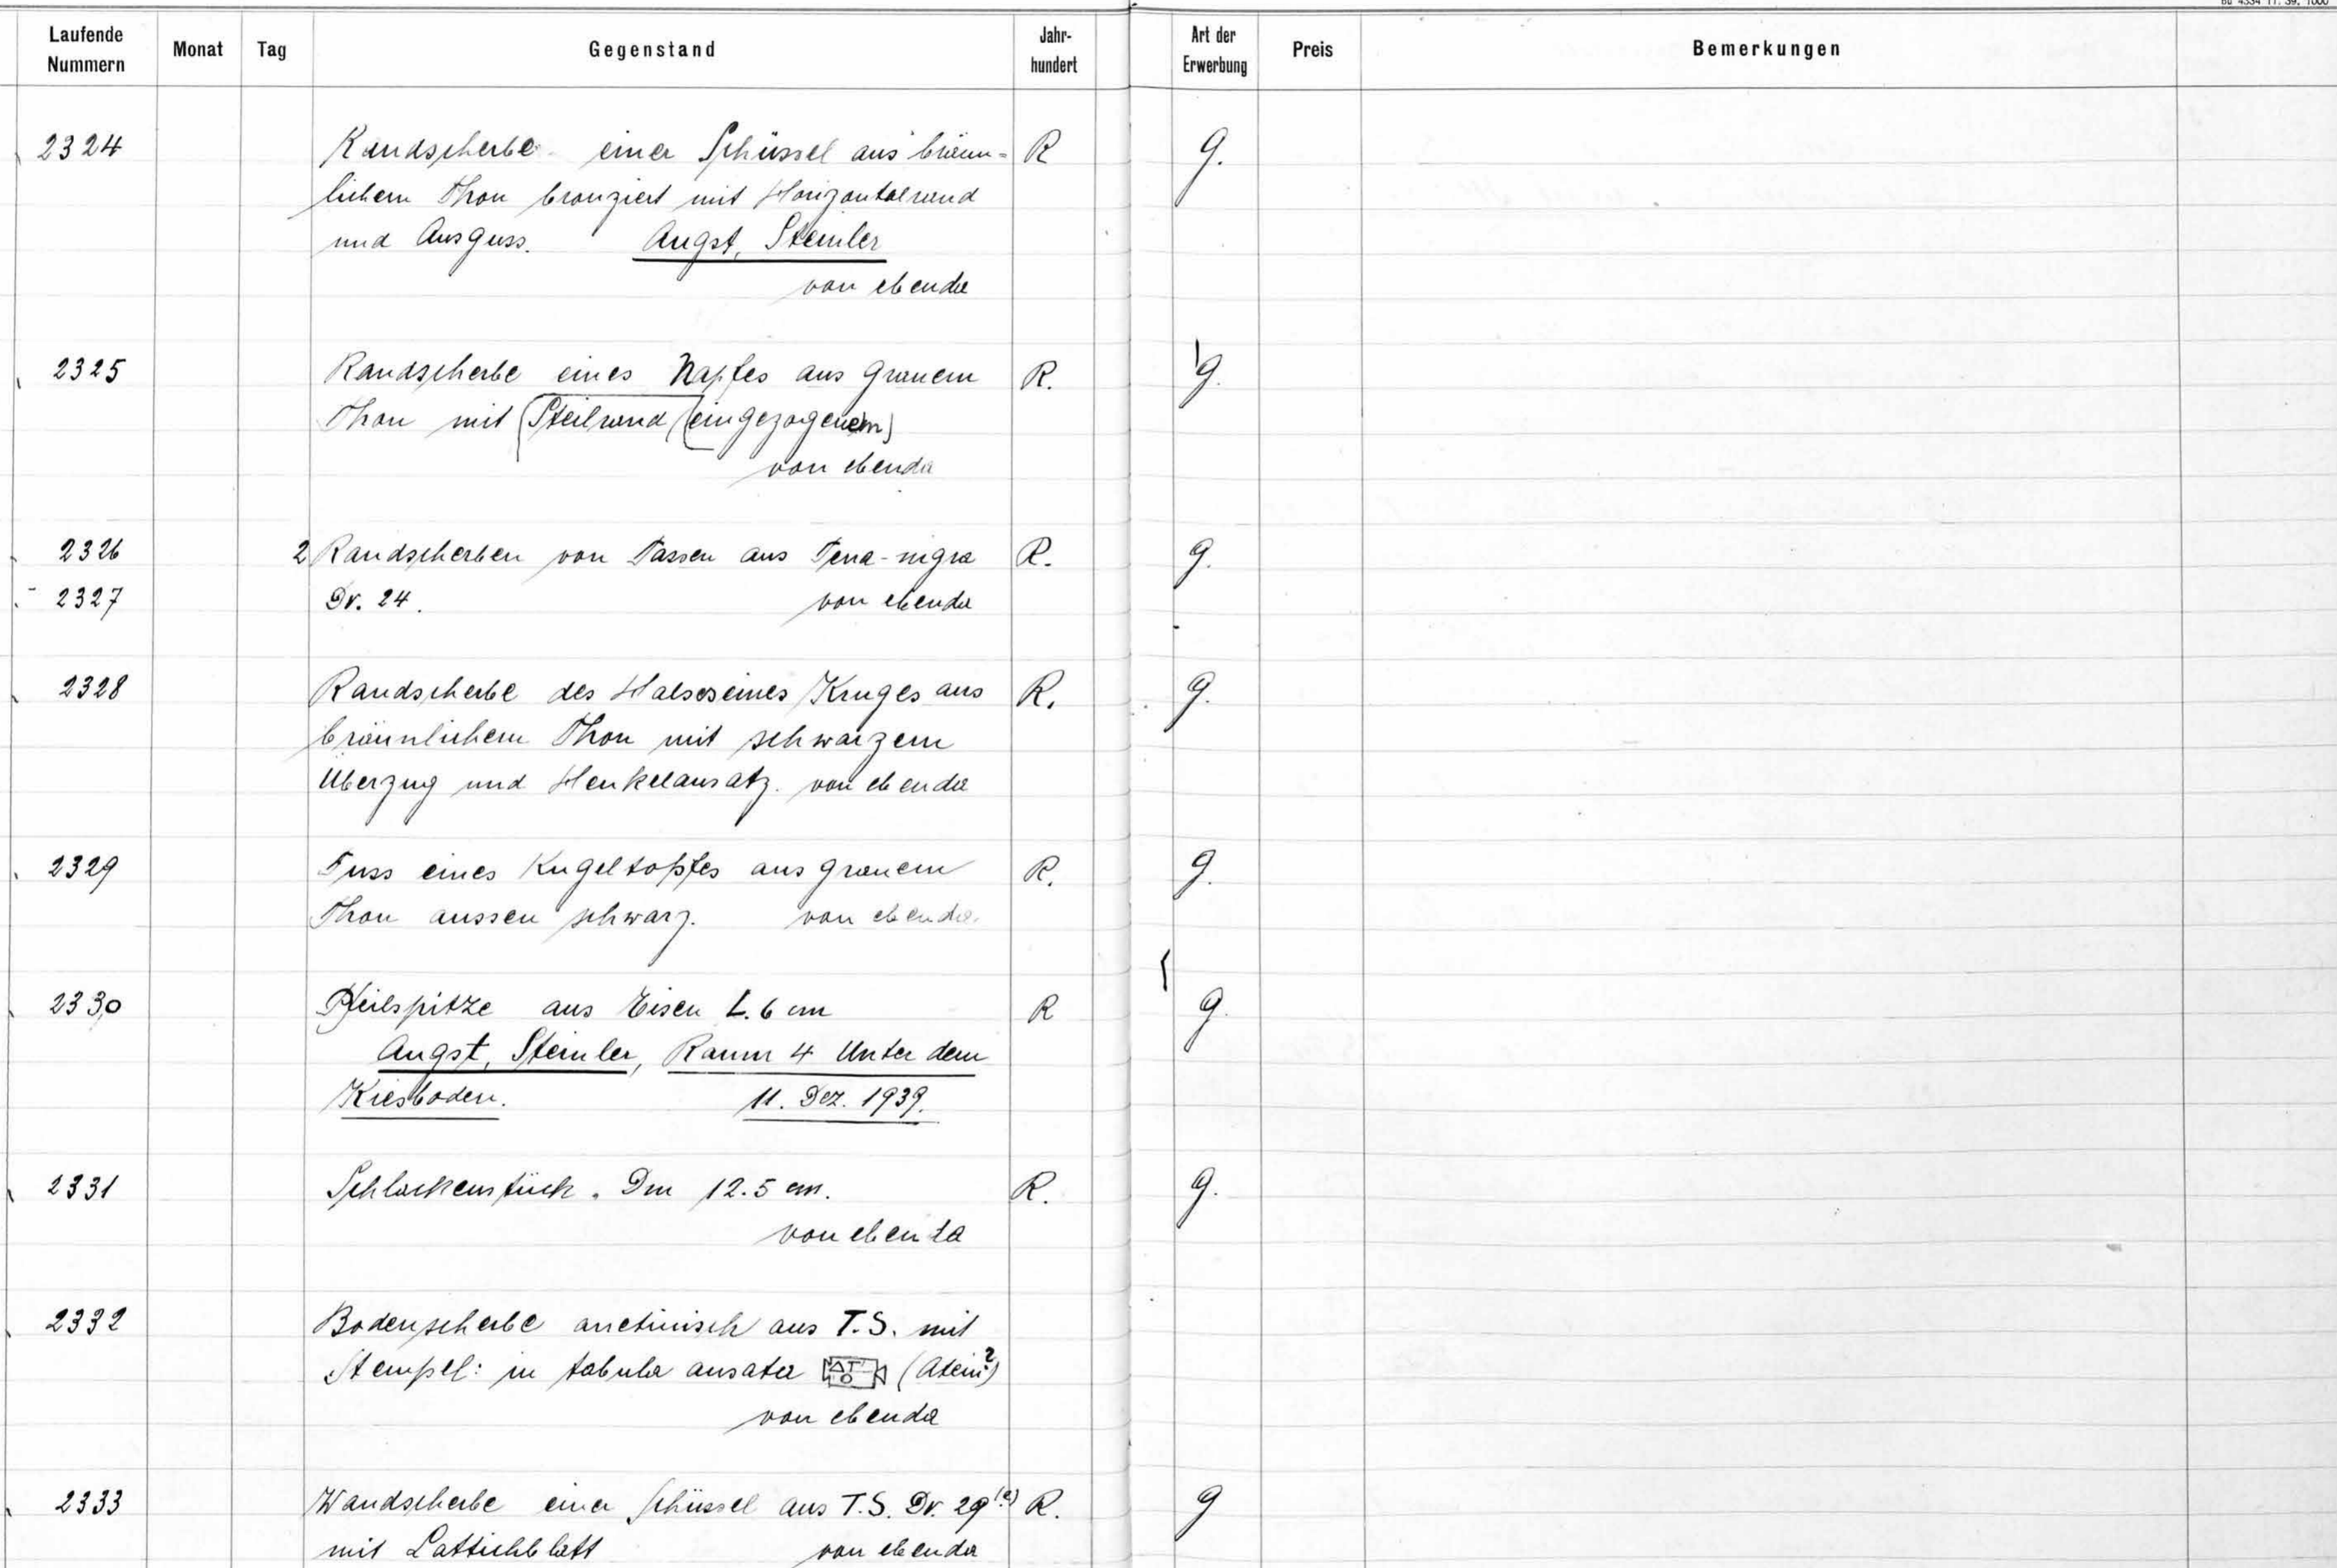 Bu 4334 11. 39. 1000
Laufende Nummern Monat Tag Gegenstand Jahr-hundert Art der Erwerbung Preis Bemerkungen
2324 Randscherbe einer Schüssel aus bräun- R g.
lichem Thon bronziert mit Horizontalrand
und Ausguss. Augst, Steinler
von ebenda
2325 Randscherbe eines Napfes aus grauem R. g.
Thon mit (Steilrand (eingezogenem)
von ebenda
2326 2 Randscherben von Tassen aus Terra-nigra R. g.
- 2327 Dr. 24. von ebenda
2328 Randscherbe des Halses eines Kruges aus R. g.
bräunlichem Thon mit schwarzem
Überzug und Henkelansatz. von ebenda
2329 Fuss eines Kugeltopfes aus grauem R. g.
Thon aussen schwarz. von ebenda.
2330 Pfeilspitze aus Eisen L. 6 cm R g.
Augst, Steinler, Raum 4 Unter dem
Kiesboden. 11. Dez. 1939.
2331 Schlackenstück. Dm 12.5 cm. R. g.
von ebenda
2332 Bodenscherbe arretinisch aus T.S. mit
Stempel: in tabula ansata ATO (Atein?)
von ebenda
2333 Wandscherbe einer Schüssel aus T.S. Dr. 29 (?) R. g
mit Lattichblatt von ebenda